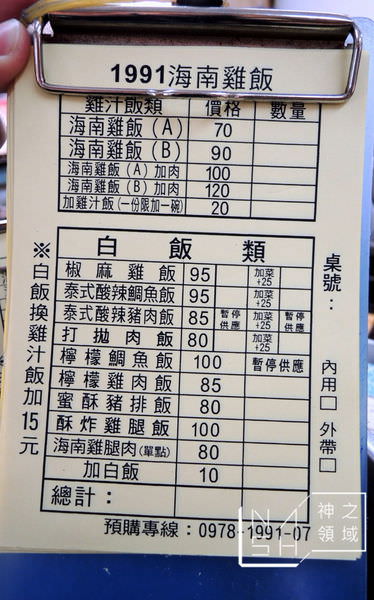 1991海南雞飯
雞汁飯類 價格 數量
海南雞飯(A) 70
海南雞飯(B) 90
海南雞飯(A)加肉 100
海南雞飯(B)加肉 120
加雞汁飯(一份限加一碗) 20
白飯類
椒麻雞飯 95 加菜+25
泰式酸辣鯛魚飯 95 加菜+25
泰式酸辣豬肉飯 85 暫停供應 加菜+25 暫停供應
打拋肉飯 80 加菜+25
檸檬鯛魚飯 100 暫停供應
檸檬雞肉飯 85
蜜酥豬排飯 80
酥炸雞腿飯 100
海南雞腿肉(單點) 80
加白飯 10
總計:
※白飯換雞汁飯加15元
桌號:
內用□ 外帶□
預購專線:0978-1991-07
神之領域